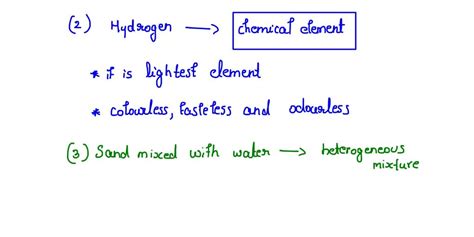 (2) Hydrogen → chemical element
* it is lightest element
* colourless, tasteless and odourless
(3) Sand mixed with water → heterogeneous
mixture